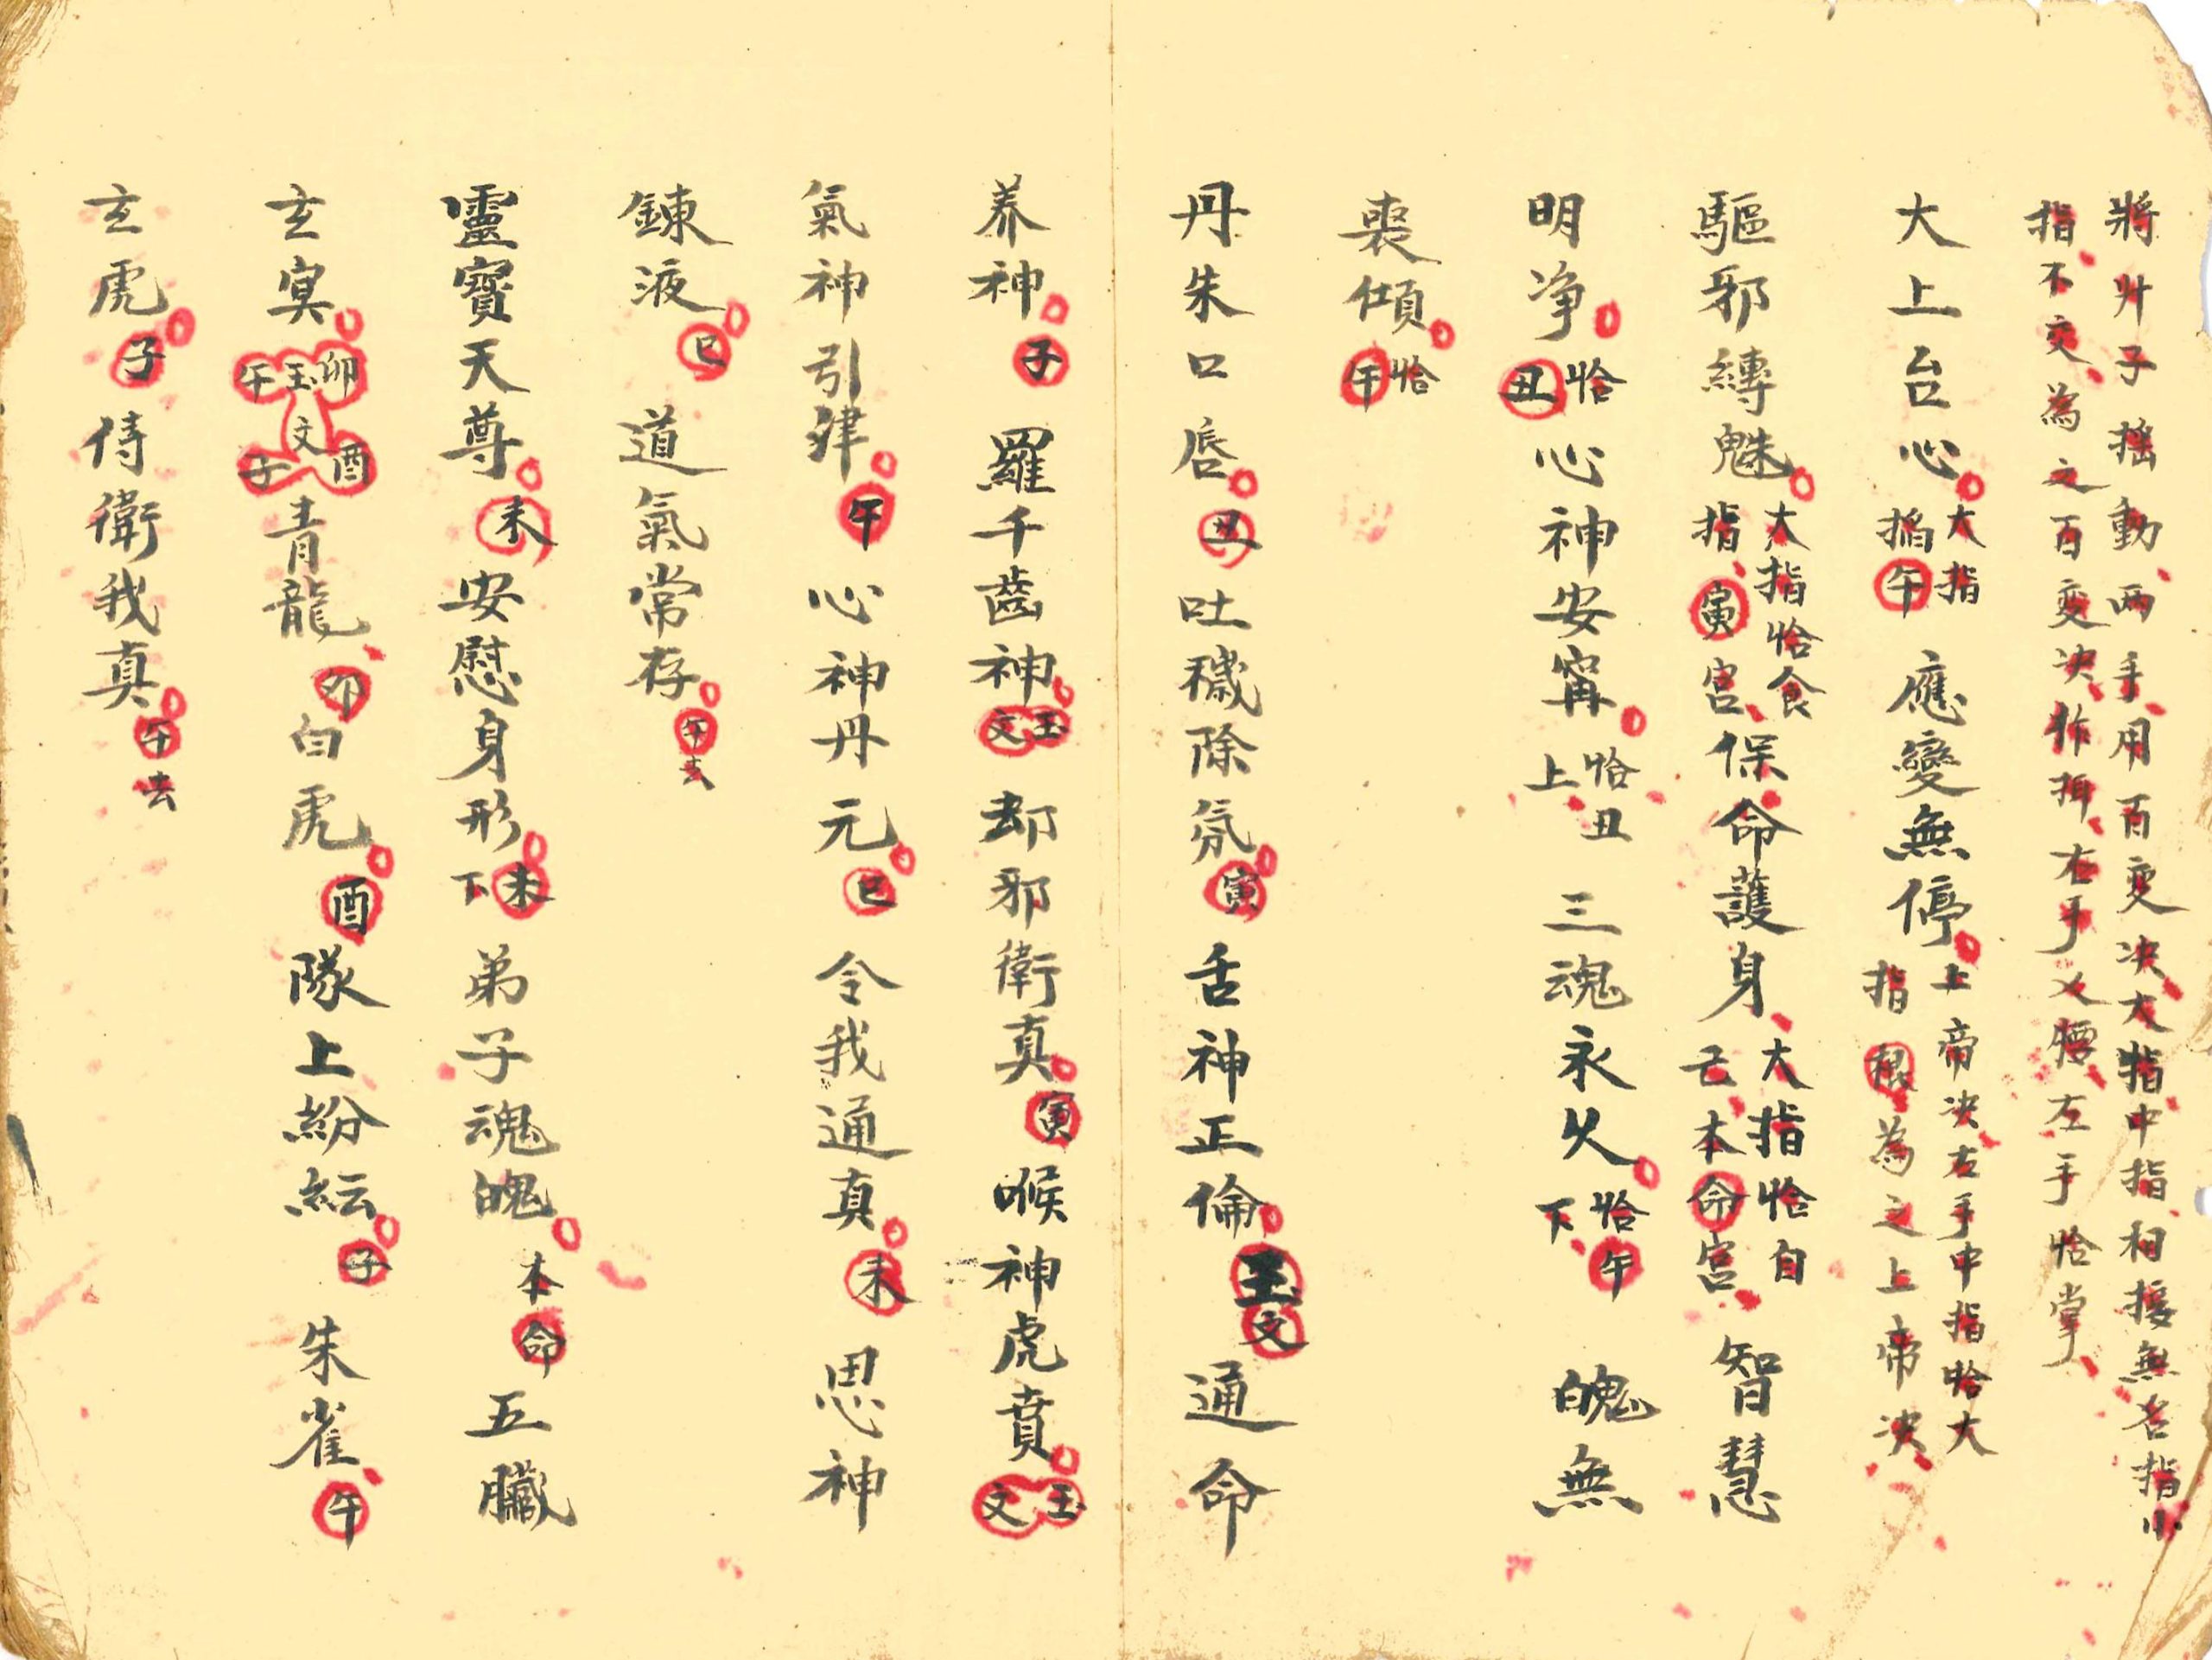 將廾子搖動両手用百变决大指中指相接無名指小
指不交為之百变决作揖右手乂腰左手恰掌
大上台心大指掐午應變無停上帝决右手中指恰大指根為之上帝决
驅邪縛魅大指恰食指寅宮保命護身大指恰自己本命宮智慧
明净恰丑心神安寗恰丑上三魂永久恰午下魄無
喪傾恰午
丹朱口唇丑吐穢除氛寅舌神正倫玉文通命
养神子羅千齒神玉文却邪衛真寅喉神虎賁玉文
氣神引津午心神丹元巳令我通真未思神
鍊液巳道氣常存午去
靈寳天尊未安慰身形未下弟子魂魄本命五臟
玄冥卯玉午文酉子青龍卯白虎酉隊上紛紜子朱雀午
玄虎子侍衛我真午去